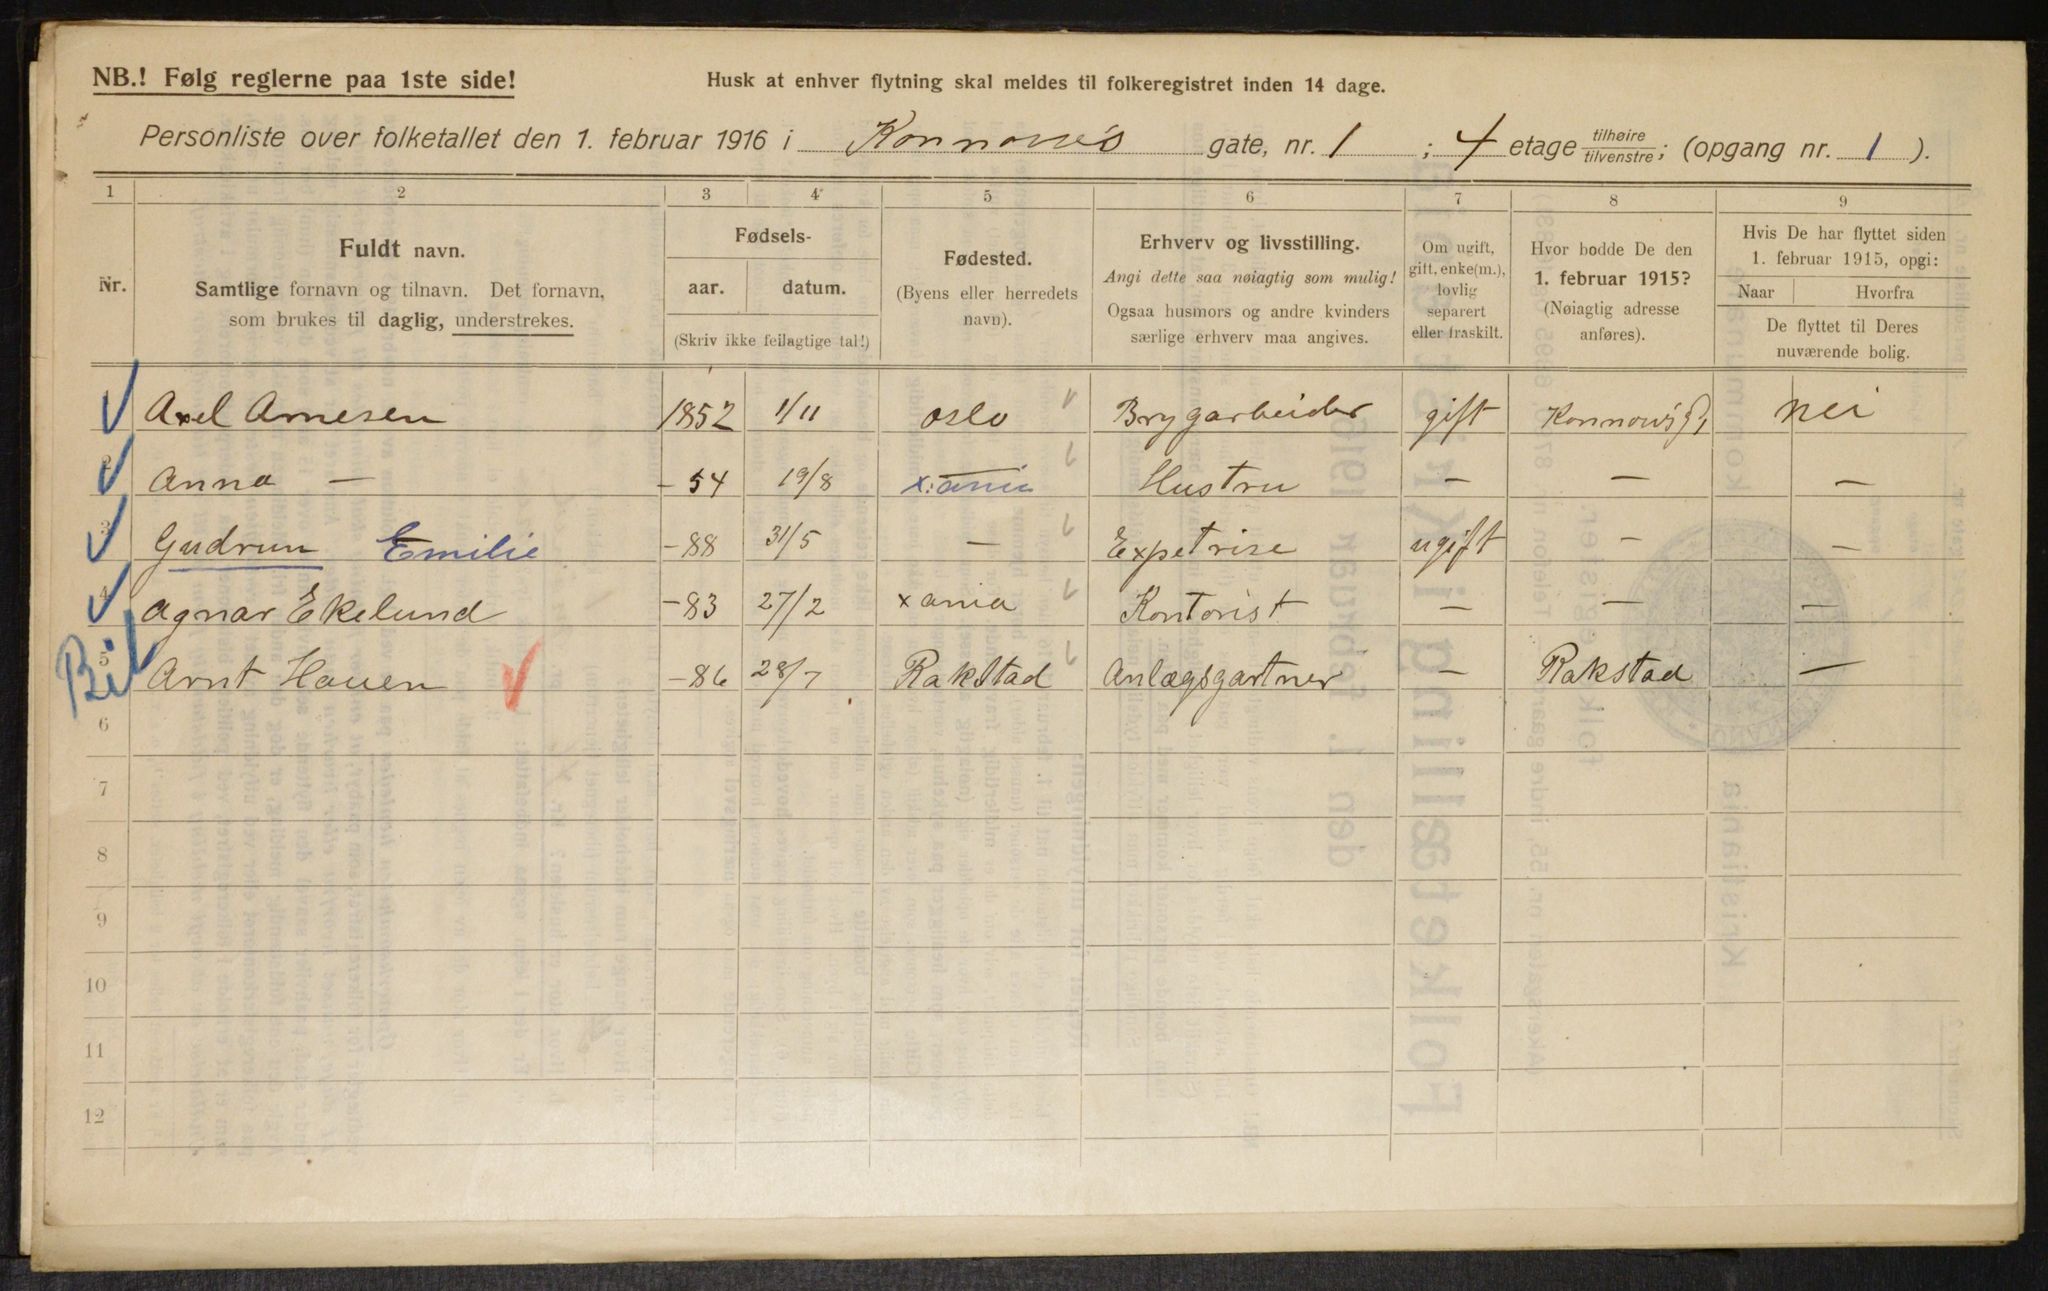 NB.! Følg reglerne paa 1ste side!
Husk at enhver flytning skal meldes til folkeregistret inden 14 dage.
Personliste over folketallet den 1. februar 1916 i Konnows gate, nr. 1 ; 4 etage tilhøire/tilvenstre; (opgang nr. 1 ).
1 2 3 4 5 6 7 8 9
Nr.
Fuldt navn.
Samtlige fornavn og tilnavn. Det fornavn,
som brukes til daglig, understrekes.
Fødsels-
aar. datum.
(Skriv ikke feilagtige tal!)
Fødested.
(Byens eller herredets
navn).
Erhverv og livsstilling.
Angi dette saa nøiagtig som mulig!
Ogsaa husmors og andre kvinders
særlige erhverv maa angives.
Om ugift,
gift, enke(m.),
lovlig
separert
eller fraskilt.
Hvor bodde De den
1. februar 1915?
(Nøiagtig adresse
anføres).
Hvis De har flyttet siden
1. februar 1915, opgi:
Naar Hvorfra
De flyttet til Deres
nuværende bolig.
Axel Arnesen 1852 1/11 Oslo Brygarbeider gift Konnows g 1 Nei
2 Anna — - 54 19/8 x:ania Hustru — — —
3 Gudrun Emilie - 88 31/5 — Expetrise ugift — —
4 Agnar Ekelund - 83 27/2 xania Kontorist — — —
Bil
5 Arnt Hauen - 86 28/7 Rakstad Anlægsgartner — Rakstad —
6
7
8
9
10
11
12